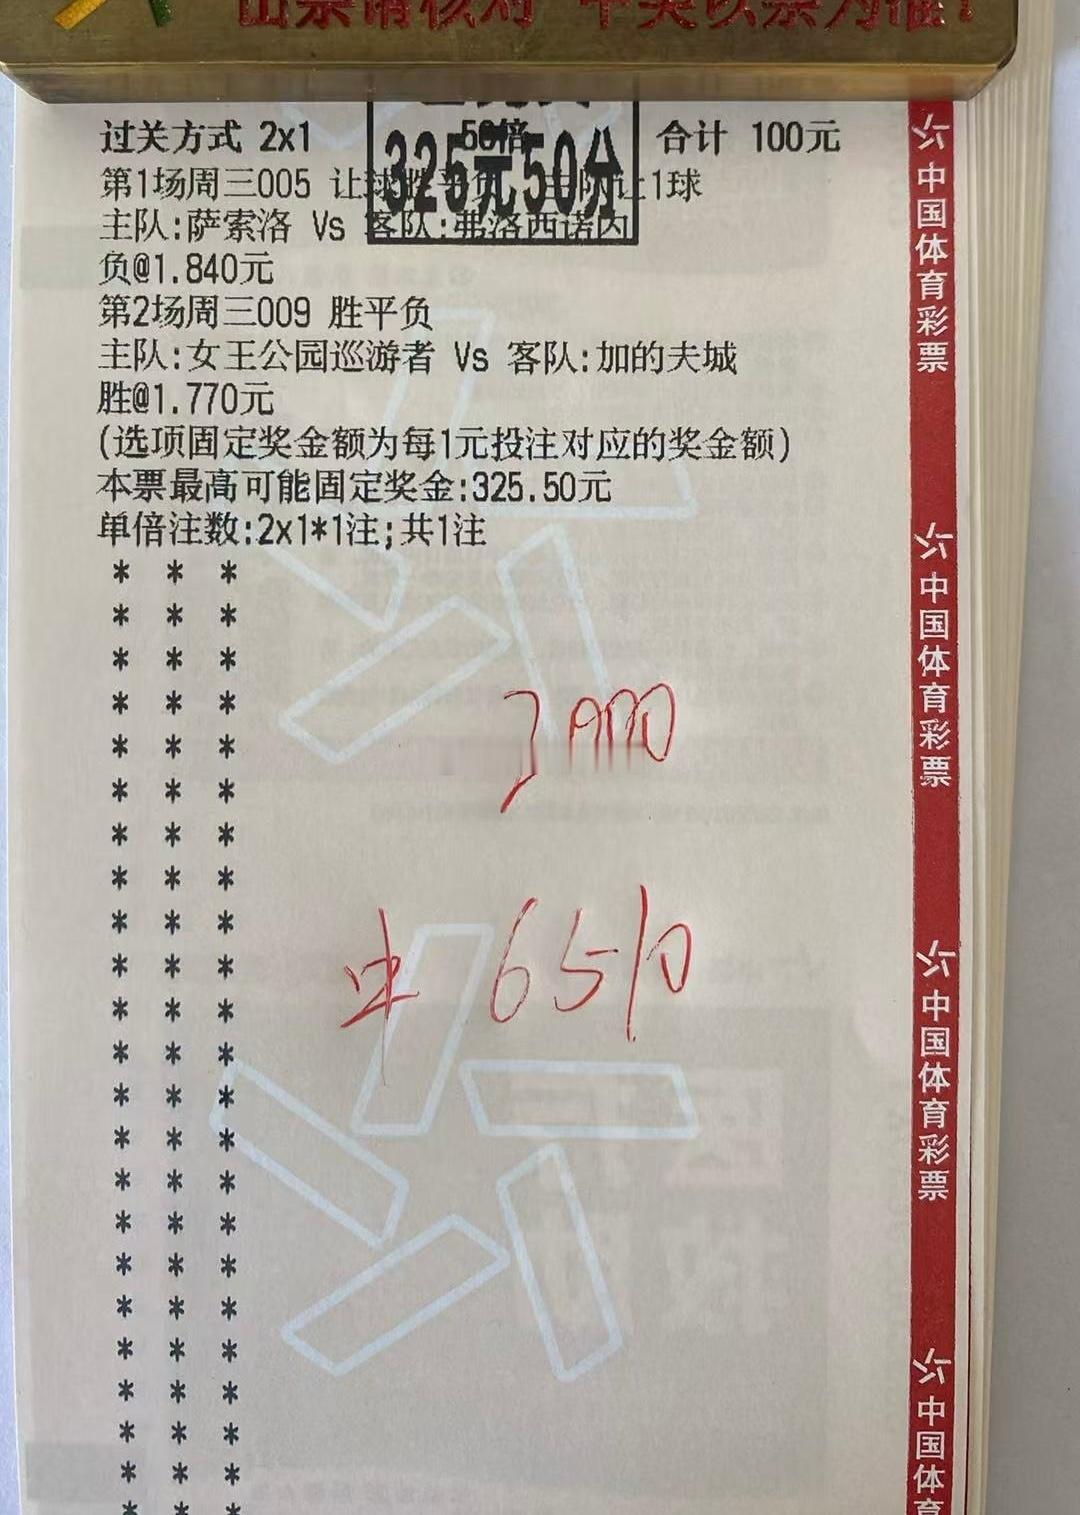 出票请核对 中奖以票为准！
过关方式 2x1 50倍 合计 100元
325元50分
第1场周三005 让球胜平负 主队让1球
主队:萨索洛 Vs 客队:弗洛西诺内
负@1.840元
第2场周三009 胜平负
主队:女王公园巡游者 Vs 客队:加的夫城
胜@1.770元
(选项固定奖金额为每1元投注对应的奖金额)
本票最高可能固定奖金:325.50元
单倍注数:2x1*1注;共1注
* * *
* * *
* * *
* * *
* * *
* * *
* * *
* * *
* * *
* * *
* * *
* * *
* * *
* * *
* * *
* * *
* * *
* * *
* * *
* * *
* * *
* * *
* * *
中 6510
中国体育彩票
中国体育彩票
中国体育彩票
中国体育